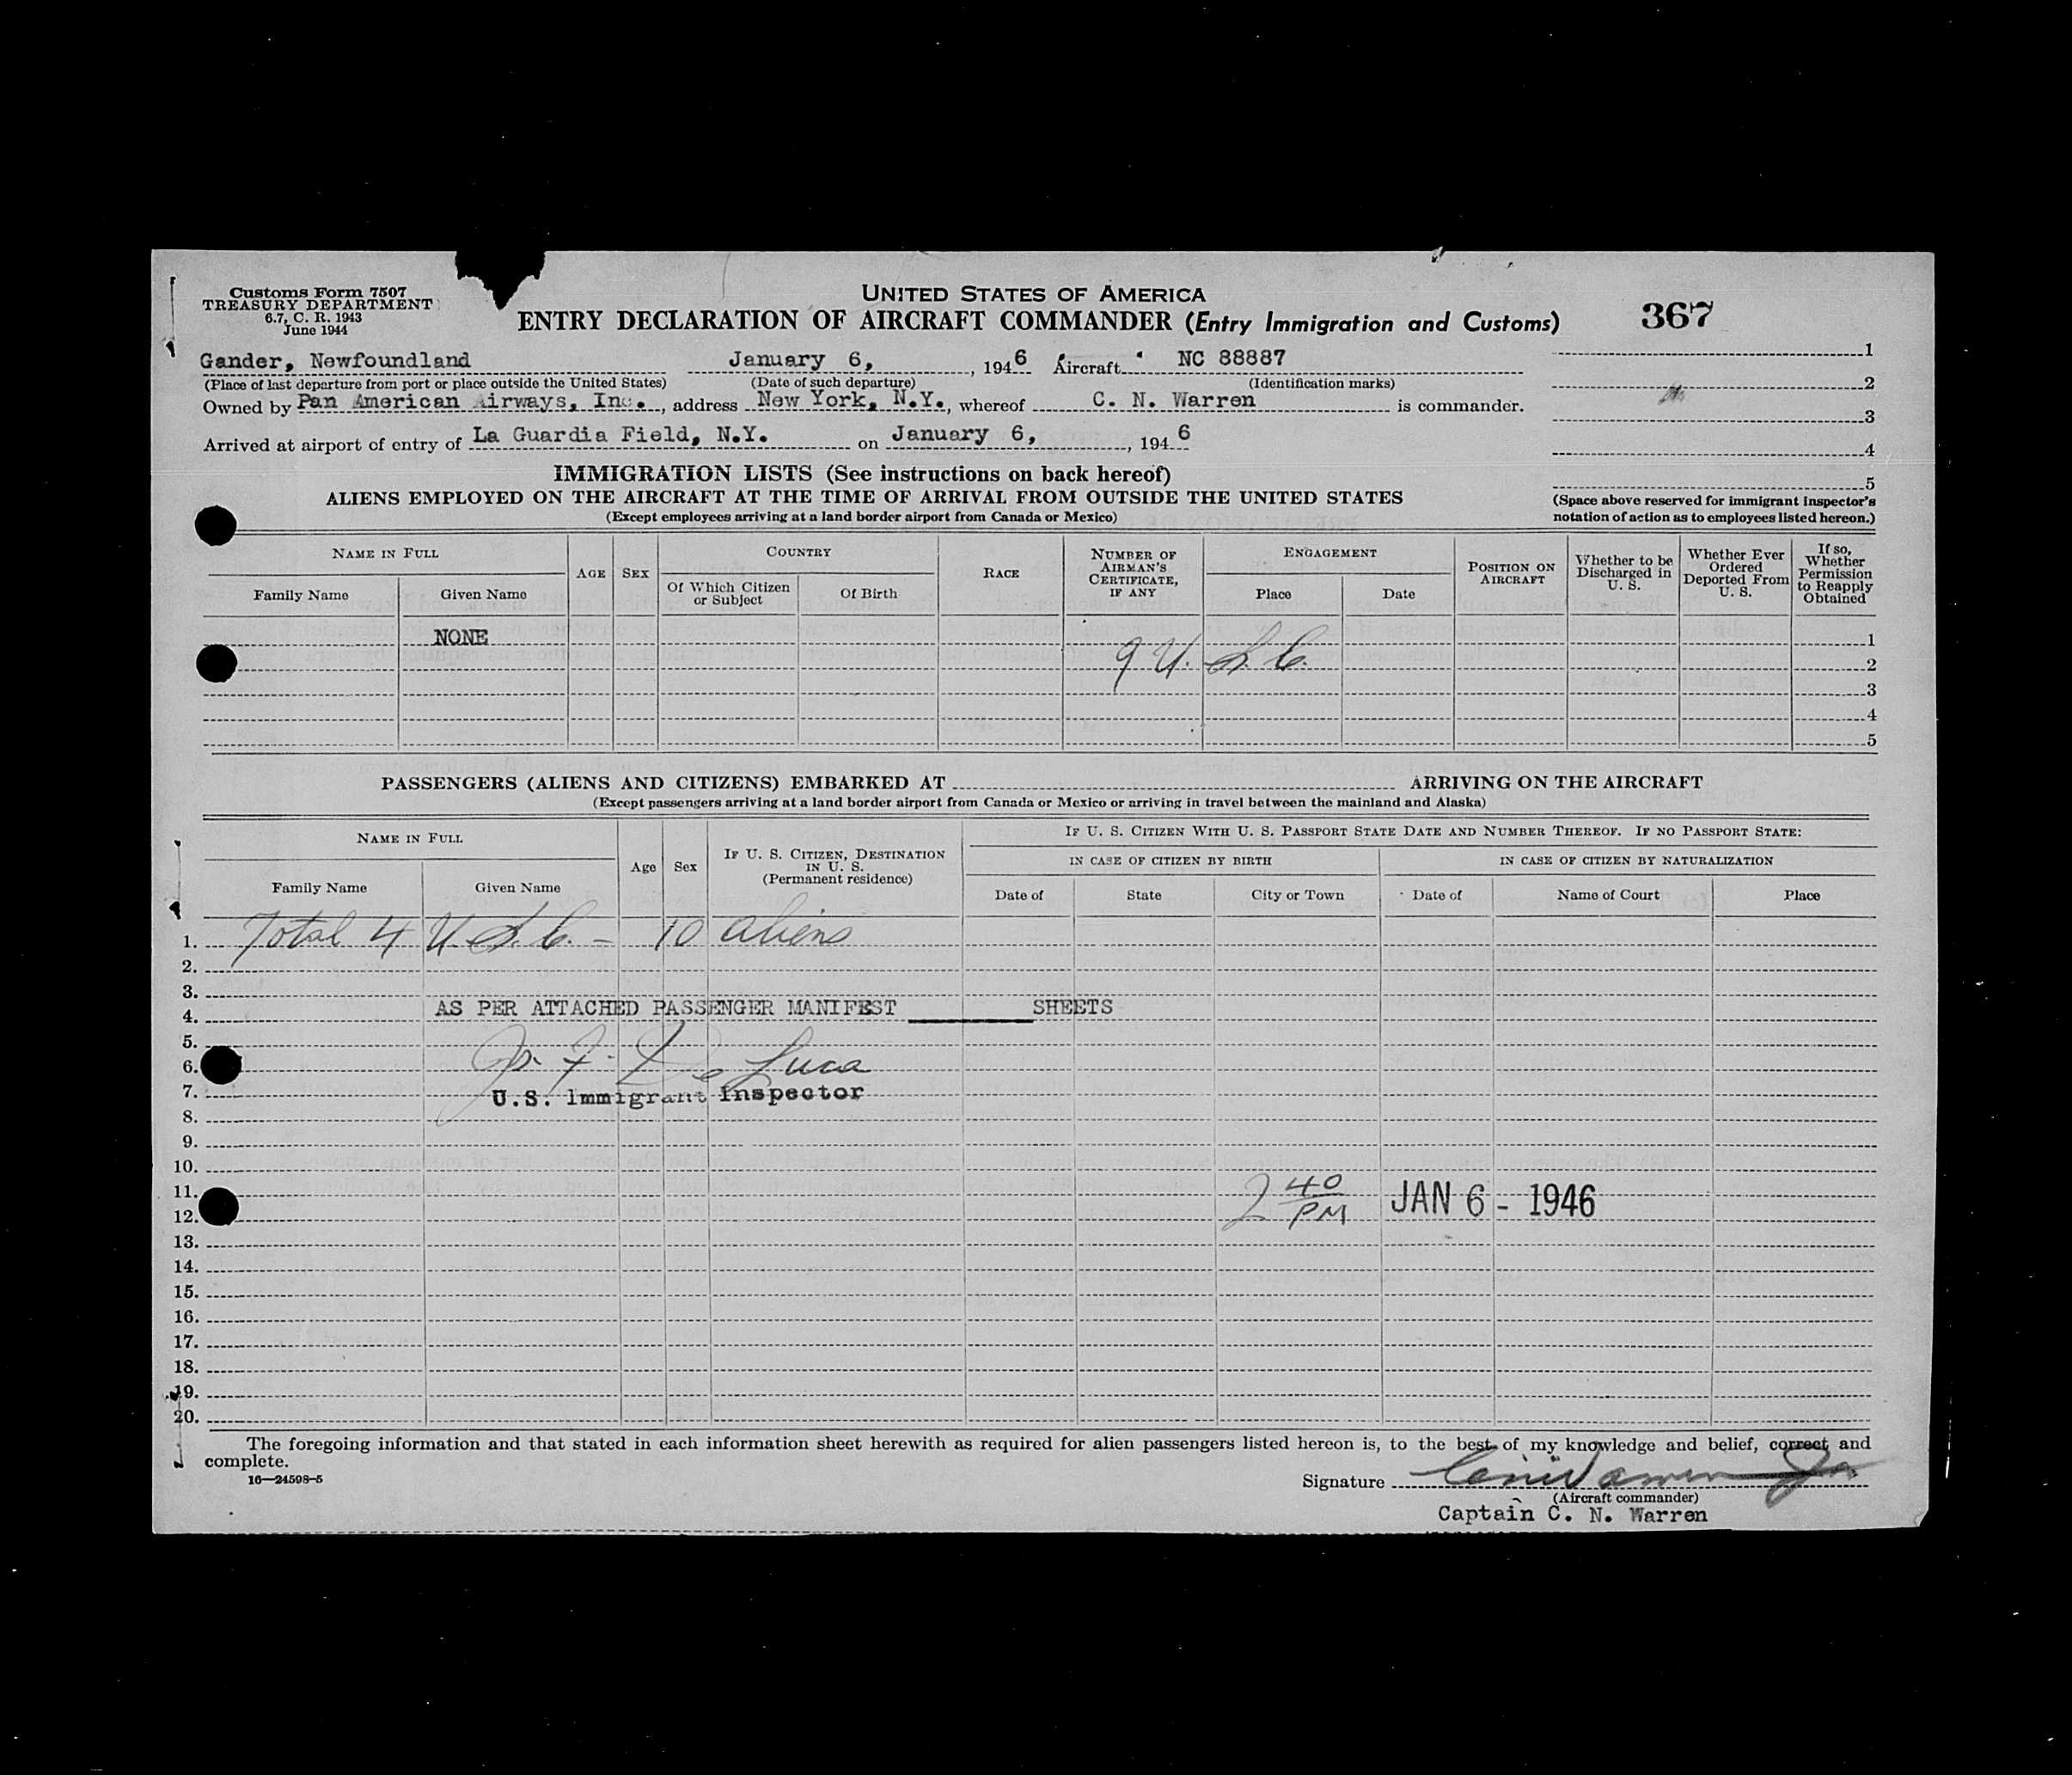 Customs Form 7507
TREASURY DEPARTMENT
6.7, C. R. 1943
June 1944
UNITED STATES OF AMERICA
ENTRY DECLARATION OF AIRCRAFT COMMANDER (Entry Immigration and Customs)
367
Gander, Newfoundland January 6, 1946 Aircraft NC 88887
(Place of last departure from port or place outside the United States) (Date of such departure) (Identification marks)
Owned by Pan American Airways, Inc., address New York, N.Y., whereof C. N. Warren is commander.
Arrived at airport of entry of La Guardia Field, N.Y. on January 6, 1946
1
2
3
4
5
(Space above reserved for immigrant inspector's
notation of action as to employees listed hereon.)
IMMIGRATION LISTS (See instructions on back hereof)
ALIENS EMPLOYED ON THE AIRCRAFT AT THE TIME OF ARRIVAL FROM OUTSIDE THE UNITED STATES
(Except employees arriving at a land border airport from Canada or Mexico)
NAME IN FULL
Family Name
Given Name
AGE
SEX
COUNTRY
Of Which Citizen
or Subject
Of Birth
RACE
NUMBER OF
AIRMAN'S
CERTIFICATE,
IF ANY
ENGAGEMENT
Place
Date
POSITION ON
AIRCRAFT
Whether to be
Discharged in
U. S.
Whether Ever
Ordered
Deported From
U. S.
If so,
Whether
Permission
to Reapply
Obtained
NONE 1
9 U. S. C. 2
3
4
5
PASSENGERS (ALIENS AND CITIZENS) EMBARKED AT ARRIVING ON THE AIRCRAFT
(Except passengers arriving at a land border airport from Canada or Mexico or arriving in travel between the mainland and Alaska)
NAME IN FULL
Family Name
Given Name
Age
Sex
IF U. S. CITIZEN, DESTINATION
IN U. S.
(Permanent residence)
IF U. S. CITIZEN WITH U. S. PASSPORT STATE DATE AND NUMBER THEREOF. IF NO PASSPORT STATE:
IN CASE OF CITIZEN BY BIRTH
IN CASE OF CITIZEN BY NATURALIZATION
Date of
State
City or Town
Date of
Name of Court
Place
1. Total 4 U. S. C. - 10 aliens
2.
3.
4. AS PER ATTACHED PASSENGER MANIFEST SHEETS
5.
6. De Luca
7. U.S. Immigrant Inspector
8.
9.
10.
11. 2 40 JAN 6 - 1946
12. PM
13.
14.
15.
16.
17.
18.
19.
20.
The foregoing information and that stated in each information sheet herewith as required for alien passengers listed hereon is, to the best of my knowledge and belief, correct and
complete.
16—24598-5
Signature
(Aircraft commander)
Captain C. N. Warren